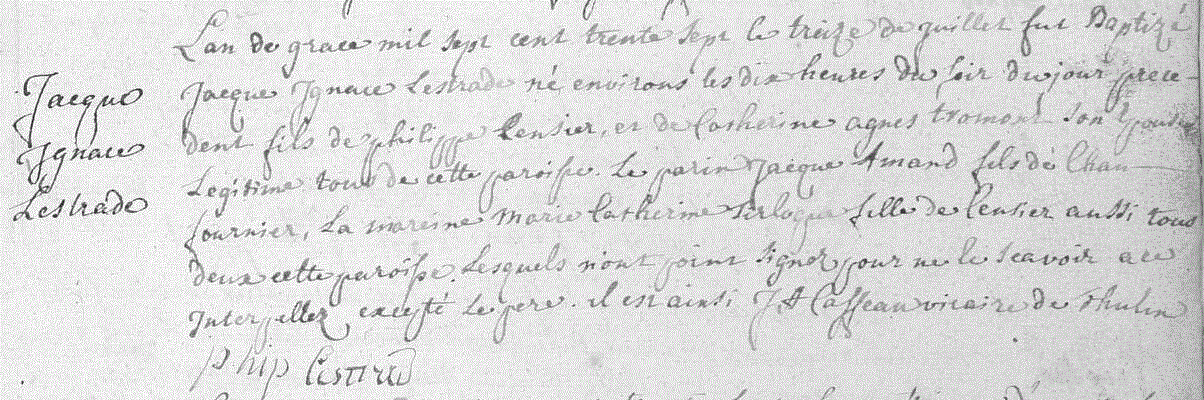 Lan de grace mil sept cent trente sept le treize de juillet fut Baptizé
Jacque Jgnace Lestrade né environs les dix heures du soir du jour prece-
dent fils de philippe Censier, et de Catherine agnes tromont son Epouse
Legitime tous de cette paroisse. Le parin Jacque Amand fils de Chan
fournier, La mareine Marie Catherine fille de Censier aussi tous
deux cette paroisse. Lesquels n'ont point signez pour ne le scavoir ace
Interpellez excepté Le pere. il est ainsi J A Casseau vicaire de thulin
phip
Jacque
Jgnace
Lestrade